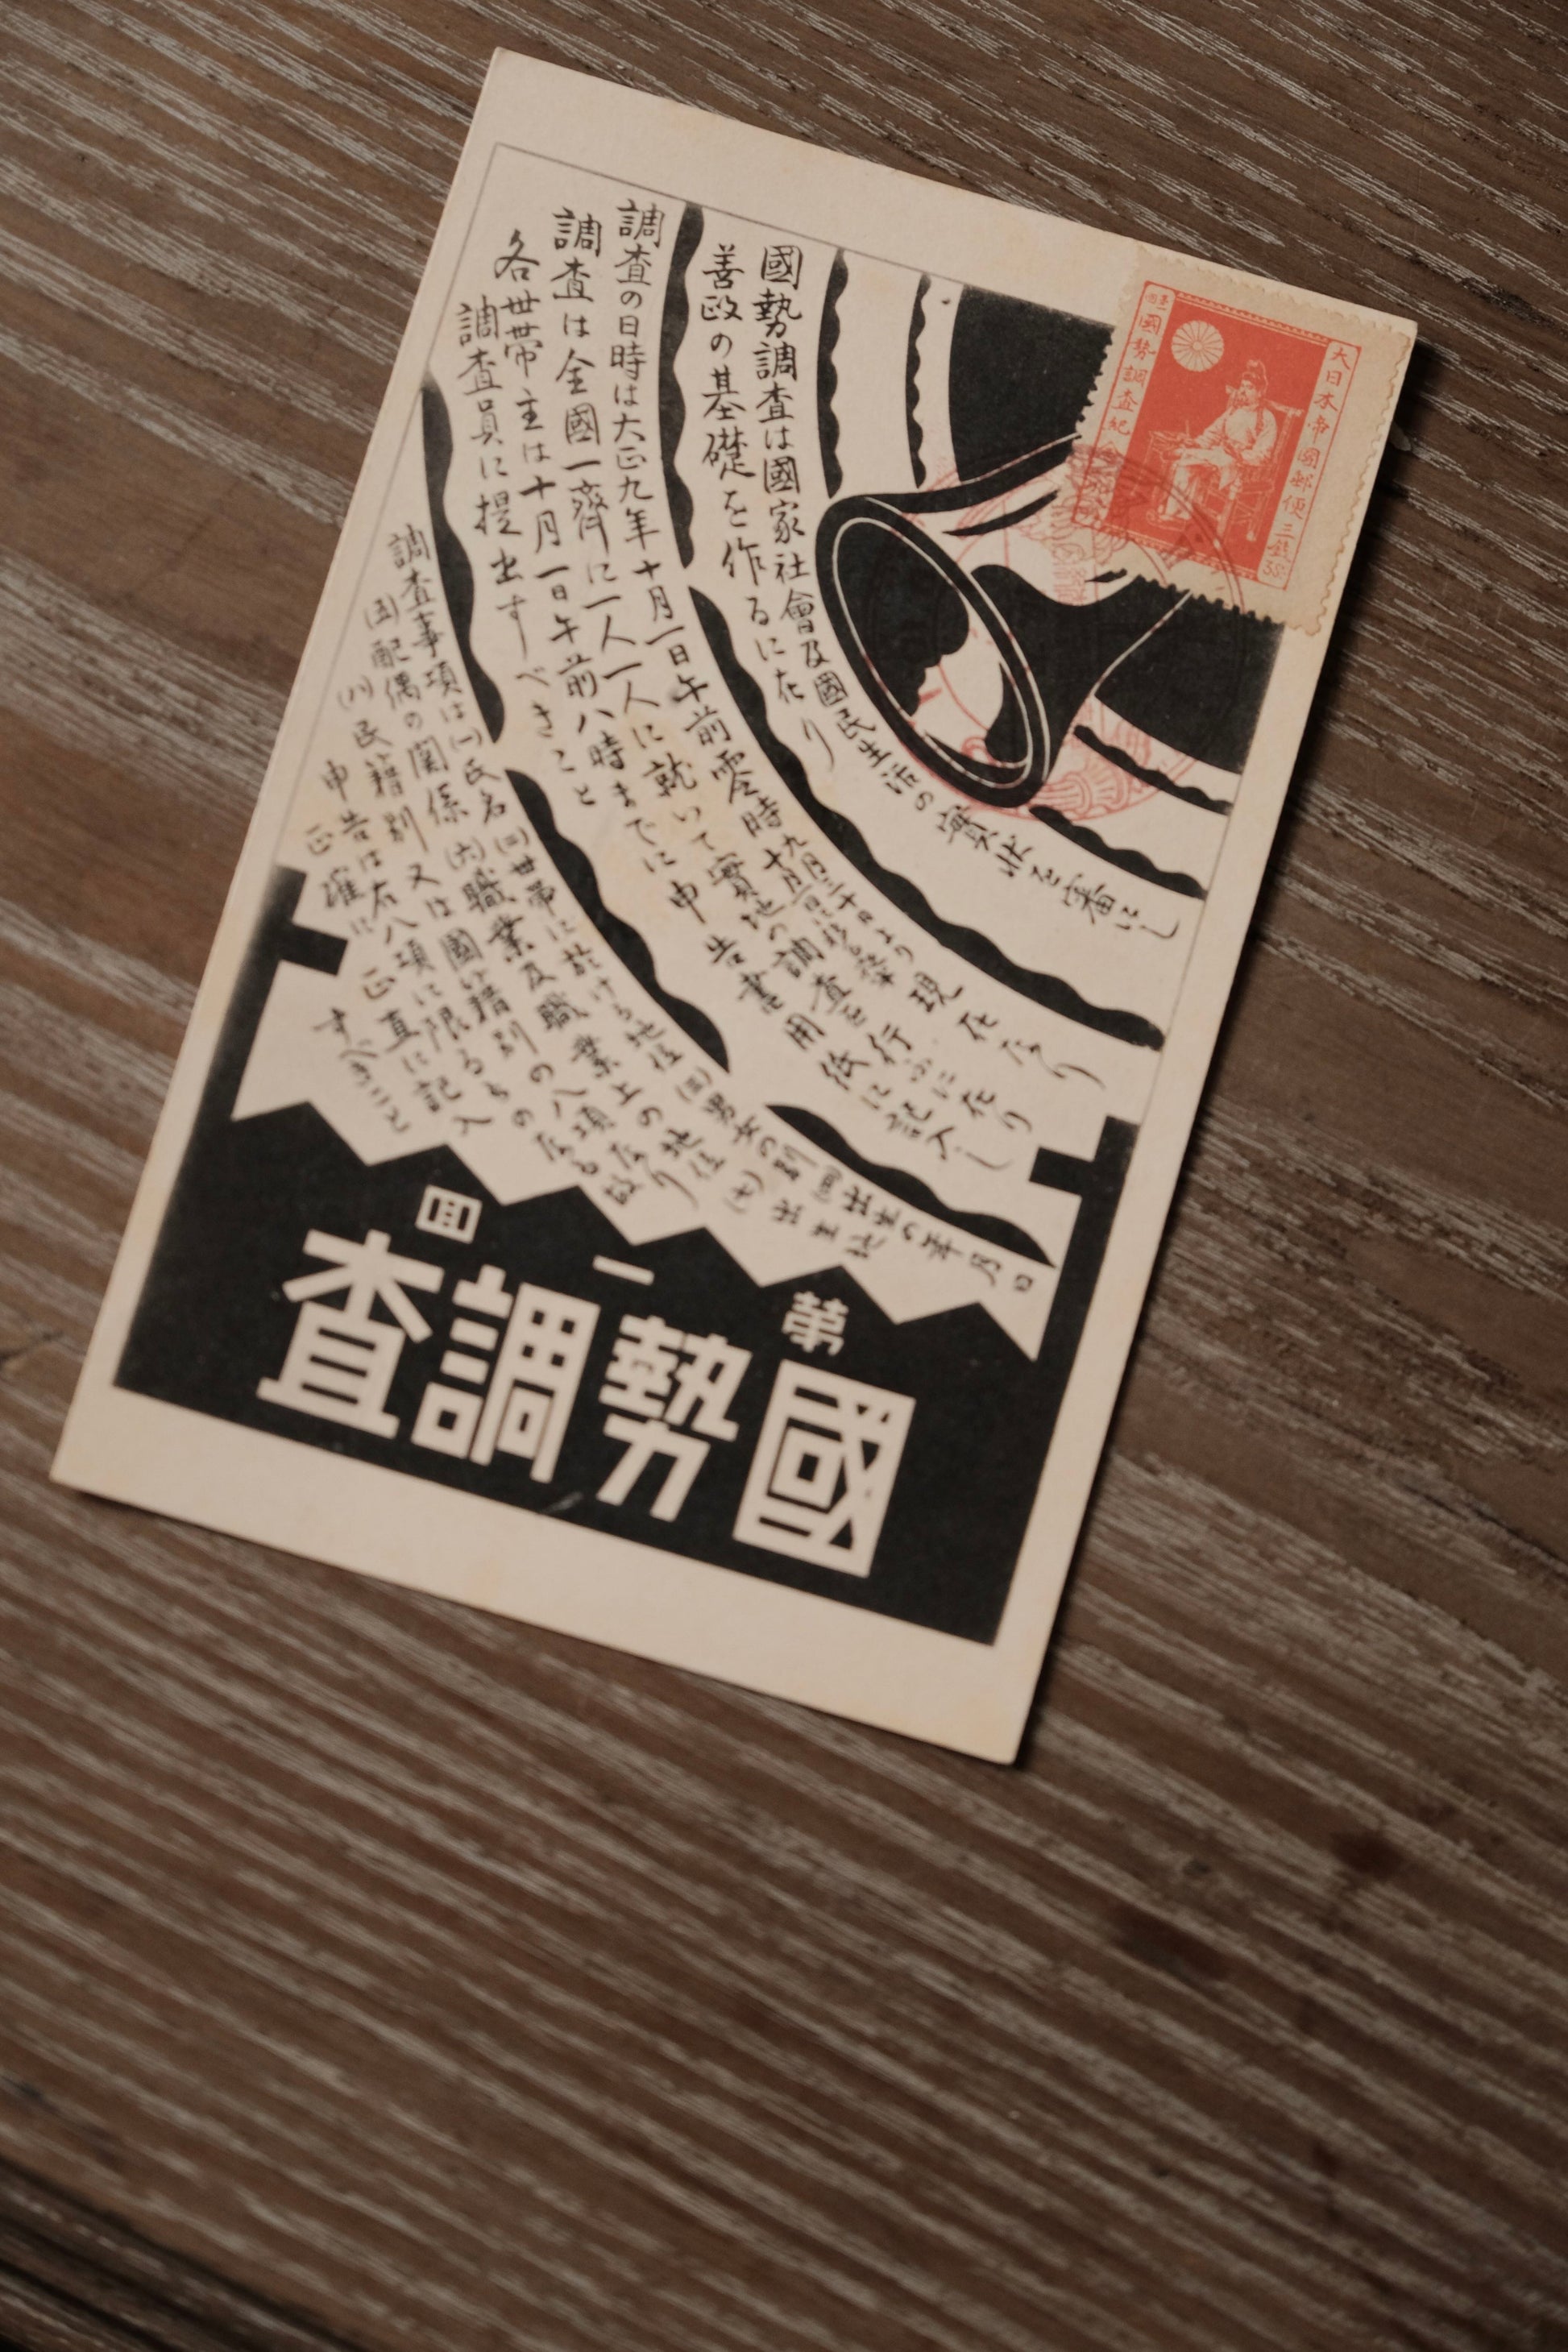 國勢調査は國家社會及國民生活の實狀を審にし
善政の基礎を作るに在り
調査の日時は大正九年十月一日午前零時
九月三十日より
十月一日に移る
現在なり
調査は全國一齊に一人一人に就いて實地の調査を行ふに在り
各世帶主は十月一日午前八時までに申告書用紙に記入し
調査員に提出すべきこと
調査事項は(一)氏名(二)世帶に於ける地位(三)男女の別(四)出生の年月日
(五)配偶の関係(六)職業及職業上の地位(七)出生地
(八)民籍別又は國籍別の八項なり
申告は右八項に限るもの
正確に正直に記入
すべきこと
第一回
國勢調査
大日本帝國郵便
三錢
3Sn
第壹回國勢調査紀念